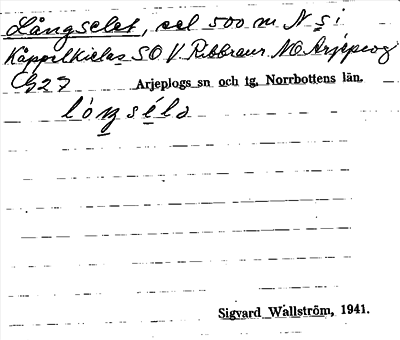 Långselet, sel 500 m N s i
Kappelkielas SO V. Ribbraur NO Arjeplog
G27 Arjeplogs sn och tg, Norrbottens län.
lóŋséla
Sigvard Wallström, 1941.